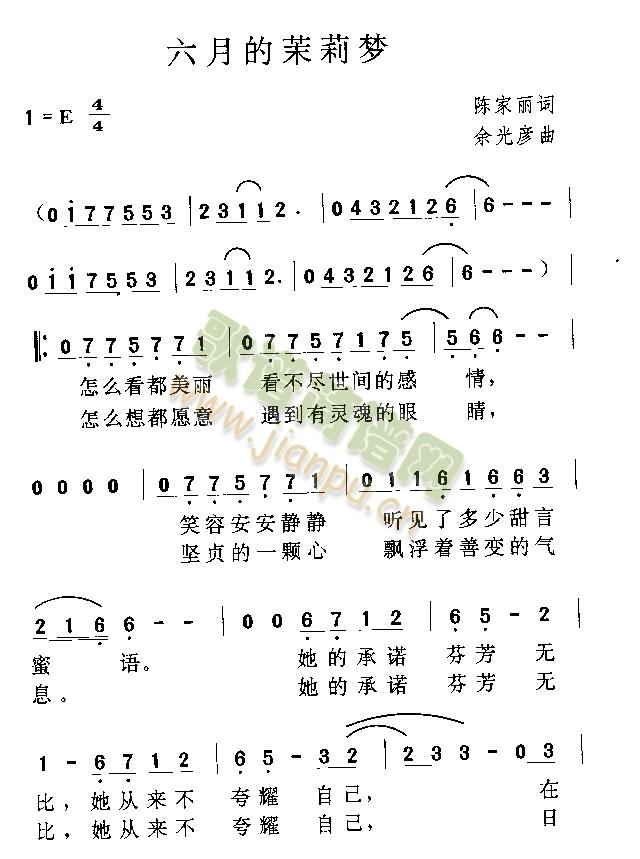 六月的茉莉梦
1 = E 4/4
陈家丽词
余光彦曲
(0 i 7 7 5 5 5 3 | 2 3 1 1 2 . | 0 4 3 2 1 2 6 | 6 - - - |
0 i i 7 5 5 3 | 2 3 1 1 2. | 0 4 3 2 1 2 6 | 6 - - - ) |
‖: 0 7 7 5 7 7 1 | 0 7 7 5 7 1 7 5 | 5 6 6 - - |
怎么看都美丽 看不尽世间的感 情，
怎么想都愿意 遇到有灵魂的眼 睛，
0 0 0 0 | 0 7 7 5 7 7 1 | 0 1 1 6 1 6 6 3 |
笑容安安静静 听见了多少甜言
坚贞的一颗心 飘浮着善变的气
2 1 6 6 - - | 0 0 6 7 1 2 | 6 5 - 2 |
蜜 语。 她的承诺 芬芳 无
息。 她的承诺 芬芳 无
1 - 6 7 1 2 | 6 5 - 3 2 | 2 3 3 - 0 3 |
比，她从来不 夸耀 自己， 在
比，她从来不 夸耀 自己， 日
歌谱简谱网
www.jianpu.cn